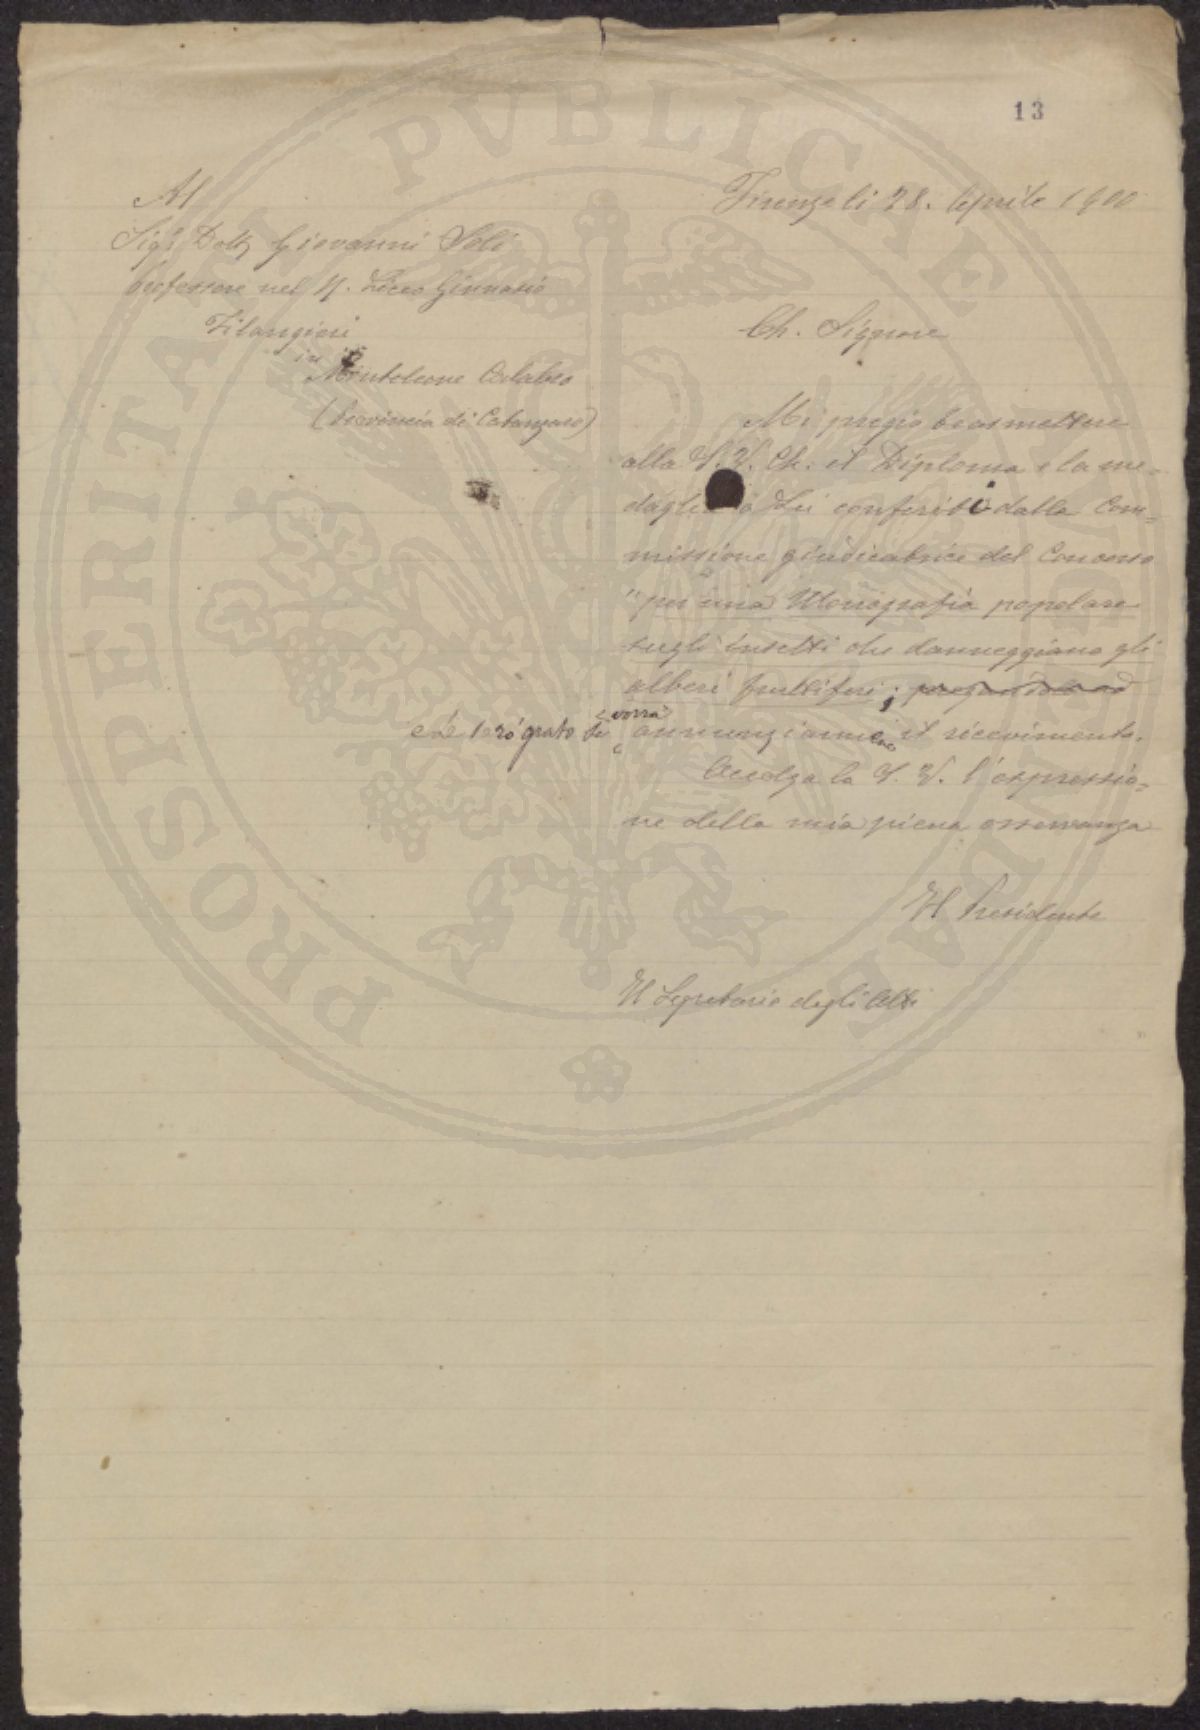 13
Firenze li 28. Aprile 1900
Al
Sigr Dott Giovanni Soli
Professore nel R. Liceo Ginnasio
Filangieri
in
Monteleone Calabro
(Provincia di Catanzaro)
Ch. Signore
Mi pregio trasmettere
alla S. V. Ch. il Diploma e la me=
daglia a Lei conferiti dalla Com=
missione giudicatrice del Concorso
"per una Monografia popolare
sugli insetti che danneggiano gli
alberi fruttiferi;
e Le sarò grato se vorrà annunziarmene il ricevimento.
Accolga la S. V. l'espressio=
ne della mia piena osservanza
Il Presidente
Il Segretario degli Atti
PROSPERITATI PVBLICAE AVGENDAE